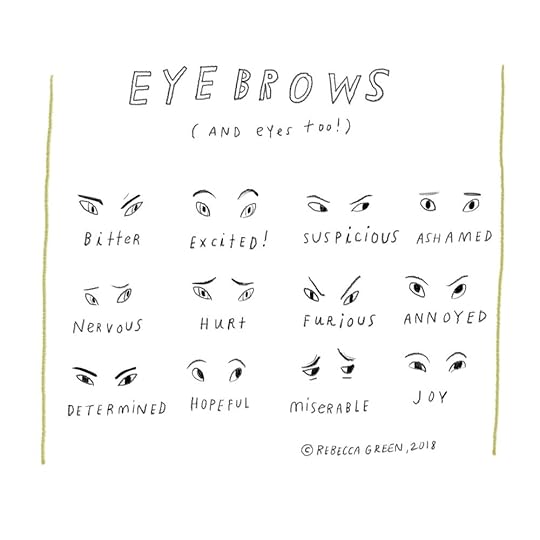 EYEBROWS
(AND eyes too!)
BitteR
EXCitED!
SUSPiCiOUS
ASHAMED
NeRVOUS
HURt
FURiOUS
ANNOYED
DETERMiNED
HOPEFUL
MiSeRABLE
JOY
© REBECCA GREEN, 2018